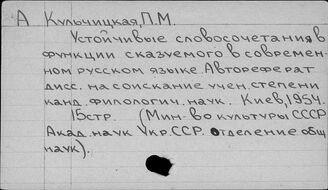 А Кульчицкая, П.М.
Устойчивые словосочетания в
функции сказуемого в современ-
ном русском языке Автореферат
дисс. на соискание учен. степени
канд. филологич. наук. Киев, 1954.
15стр. (Мин-во культуры СССР
Акад. наук Укр.ССР. отделение общ
наук).